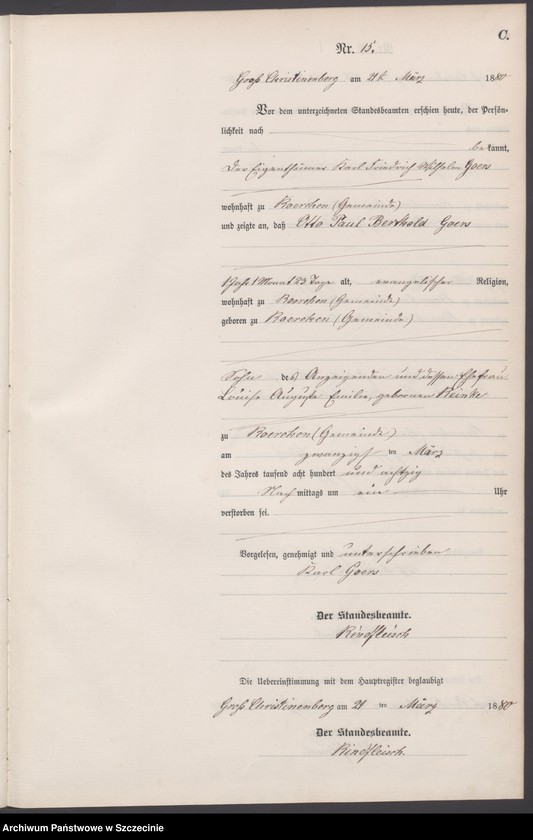 C.
Nr. 15.
Groß Christinenberg am 21ten März 1880
Vor dem unterzeichneten Standesbeamten erschien heute, der Persön-
lichkeit nach
bekannt,
der Eigenthümer Karl Friedrich Wilhelm Goers
wohnhaft zu Roerchen (Gemeinde)
und zeigte an, daß Otto Paul Berthold Goers
1 Jahr 1 Monat 23 Tage alt, evangelischer Religion,
wohnhaft zu Roerchen (Gemeinde)
geboren zu Roerchen (Gemeinde)
Sohn des Anzeigenden und dessen Ehefrau
Louise Auguste Emilie, gebornen Reinke
zu Roerchen (Gemeinde)
am zwanzigsten März
des Jahres tausend acht hundert und achtzig
Nachmittags um ein Uhr
verstorben sei.
Vorgelesen, genehmigt und unterschrieben
Karl Goers
Der Standesbeamte.
Rindfleisch
Die Uebereinstimmung mit dem Hauptregister beglaubigt
Groß Christinenberg am 21 ten März 1880
Der Standesbeamte.
Rindfleisch.
Archiwum Państwowe w Szczecinie